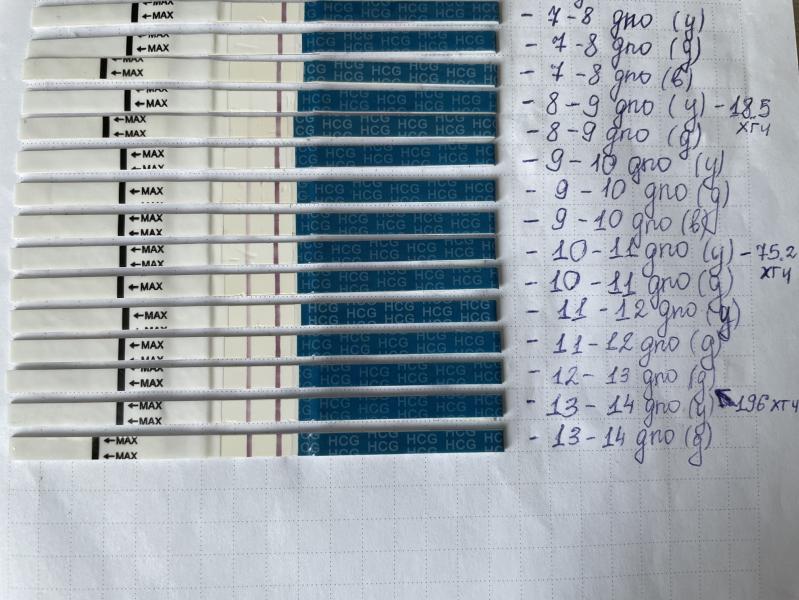 ←MAX HCG HCG HCG HCG - 7-8 дпо (у)
←MAX HCG HCG HCG HCG - 7-8 дпо (д)
←MAX HCG HCG HCG HCG - 7-8 дпо (в)
←MAX HCG HCG HCG HCG - 8-9 дпо (у) - 18.5 хгч
←MAX HCG HCG HCG HCG - 8-9 дпо (д)
←MAX HCG HCG HCG HCG - 9-10 дпо (у)
←MAX HCG HCG HCG HCG - 9-10 дпо (д)
←MAX HCG HCG HCG HCG - 9-10 дпо (в)
←MAX HCG HCG HCG HCG - 10-11 дпо (у) - 75.2 хгч
←MAX HCG HCG HCG HCG - 10-11 дпо (д)
←MAX HCG HCG HCG HCG - 11-12 дпо (у)
←MAX HCG HCG HCG HCG - 11-12 дпо (д)
←MAX HCG HCG HCG HCG - 12-13 дпо (д)
←MAX HCG HCG HCG HCG - 13-14 дпо (у) 196 хгч
←MAX HCG HCG HCG HCG - 13-14 дпо (д)
←MAX